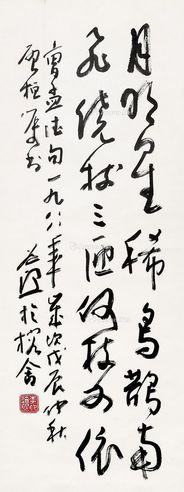 月明星稀烏鵲南
飛繞樹三匝何枝可依
曹孟德句一九八八年歲次戊辰仲秋
於榕舍